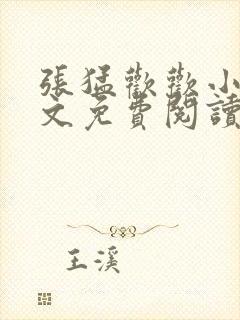 張猛歡歡小
文免費閱讀
王溪